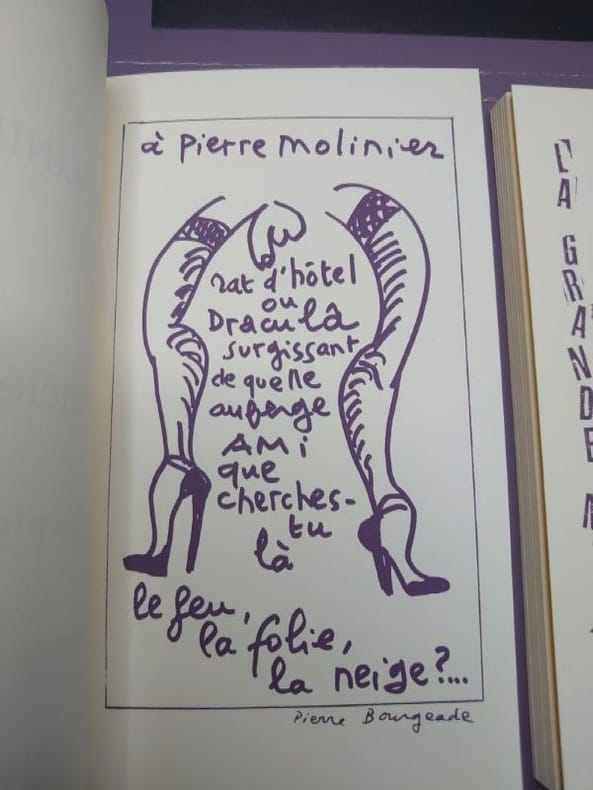 à Pierre Molinier
rat d'hôtel
ou
Dracula
surgissant
de quelle
auberge
AMi
que
cherches-
tu
là
le feu,
la folie,
la neige?...
Pierre Bourgeade
LA GRANDE